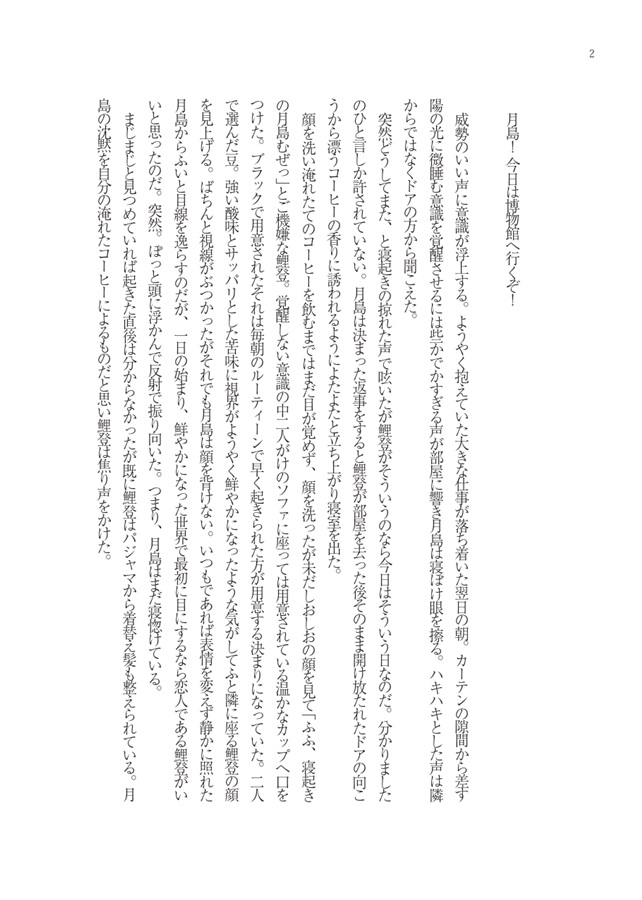 2
月島！今日は博物館へ行くぞ！
威勢のいい声に意識が浮上する。ようやく抱えていた大きな仕事が落ち着いた翌日の朝。カーテンの隙間から差す
陽の光に微睡む意識を覚醒させるには些かでかすぎる声が部屋に響き月島は寝ぼけ眼を擦る。ハキハキとした声は隣
からではなくドアの方から聞こえた。
突然どうしてまた、と寝起きの掠れた声で呟いたが鯉登がそういうのなら今日はそういう日なのだ。分かりました
のひと言しか許されていない。月島は決まった返事をすると鯉登が部屋を去った後そのまま開け放たれたドアの向こ
うから漂うコーヒーの香りに誘われるようによたよたと立ち上がり寝室を出た。
顔を洗い淹れたてのコーヒーを飲むまではまだ目が覚めず、顔を洗ったが未だしおしおの顔を見て「ふふ、寝起き
の月島むぜっ」とご機嫌な鯉登。覚醒しない意識の中二人がけのソファに座っては用意されている温かなカップへ口を
つけた。ブラックで用意されたそれは毎朝のルーティーンで早く起きられた方が用意する決まりになっていた。二人
で選んだ豆。強い酸味とサッパリとした苦味に視界がようやく鮮やかになったような気がしてふと隣に座る鯉登の顔
を見上げる。ばちんと視線がぶつかったがそれでも月島は顔を背けない。いつもであれば表情を変えず静かに照れた
月島からふいと目線を逸らすのだが、一日の始まり、鮮やかになった世界で最初に目にするなら恋人である鯉登がい
いと思ったのだ。突然。ぽっと頭に浮かんで反射で振り向いた。つまり、月島はまだ寝惚けている。
まじまじと見つめていれば起きた直後は分からなかったが既に鯉登はパジャマから着替え髪も整えられている。月
島の沈黙を自分の淹れたコーヒーによるものだと思い鯉登は焦り声をかけた。